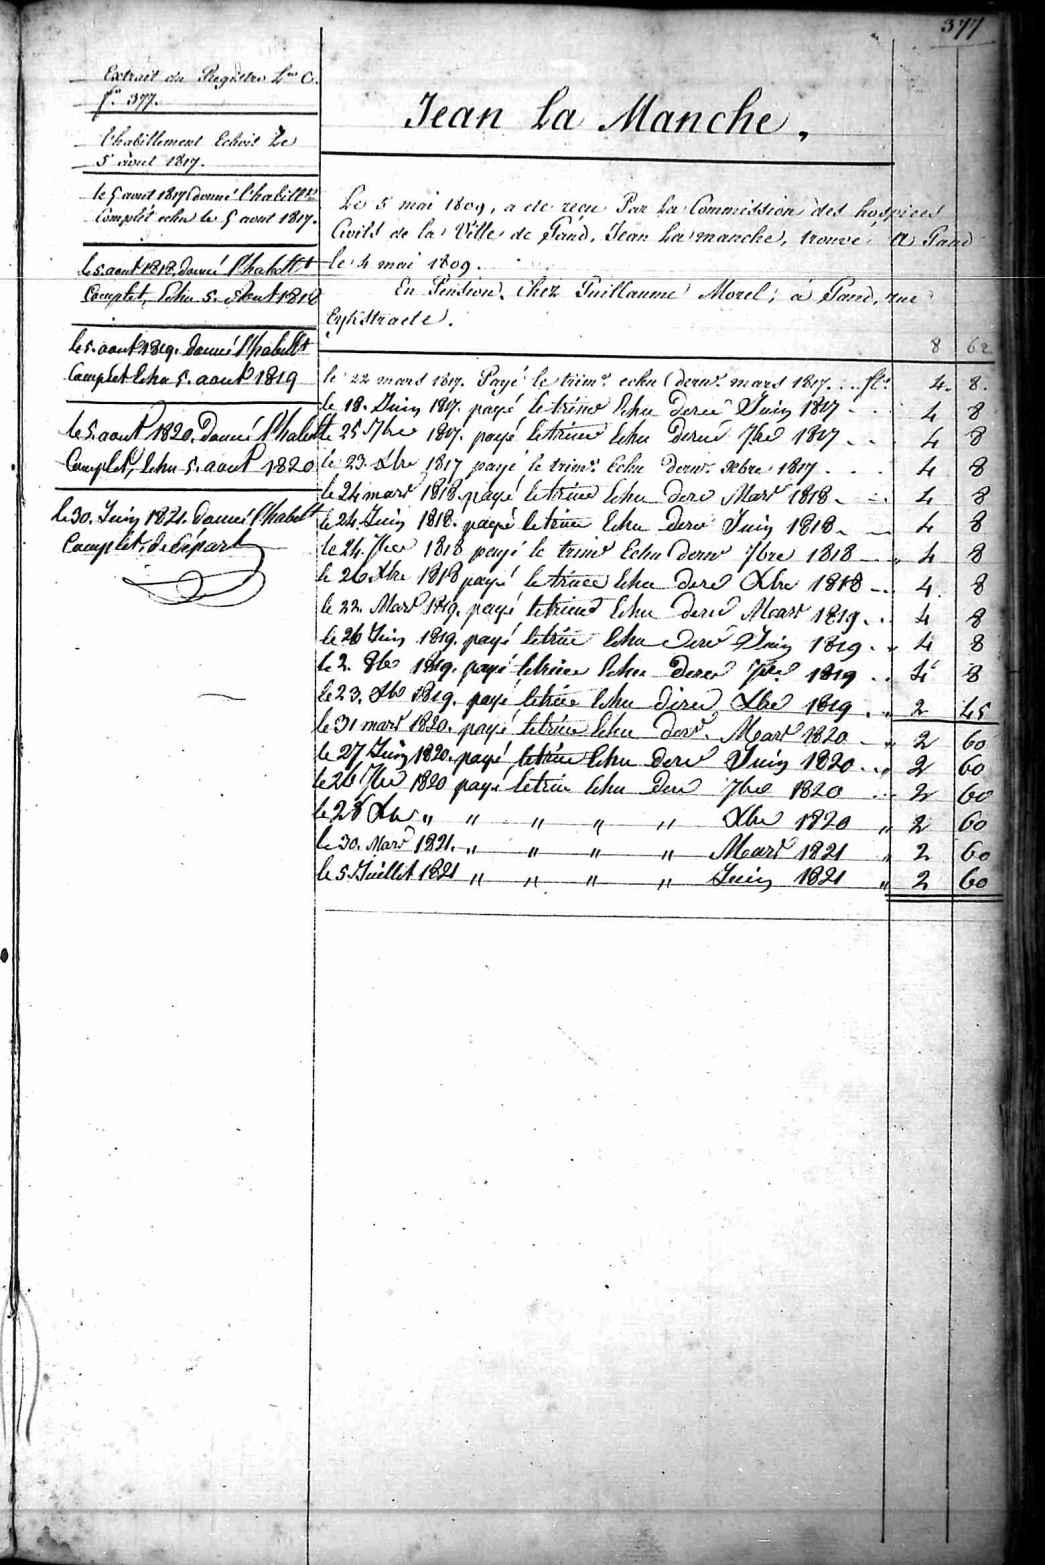 377
Extrait du Registre L.re C.
f.o 377.
l'habillement Echoit Le
5 aout 1817.
le 5 aout 1817 donné l'habill.t
Complet echu le 5 aout 1817.
le 5 aout 1818, donné l'habill.t
Complet, Echu 5. Aout 1818
le 5. aout 1819. donné l'habill.t
Complet Echu 5. aout 1819
le 5. aout 1820. Donné l'habill.t
Complet, Echu 5. aout 1820
le 30. Juin 1821. donné l'habill.t
Complet, de Départ
Jean La Manche,
Le 5 mai 1809, a ete recu Par La Commission des hospices
Civils de la Ville de Gand, Jean La manche, trouvé a Gand
le 4 mai 1809.
En Pension, Chez Guillaume Morel, à Gand, rue
Eykstraete.
8 62
le 22 mars 1817. Payé le trim.e echu dern.r mars 1817. . . fl.s 4. 8.
le 18. Juin 1817. payé le trime Echu derer Juin 1817 - . . 4 8
le 25 7bre 1817. payé le trime Echu derer 7bre 1817 . . . 4 8
le 23. Xbre 1817 payé le trim.e Echu dern.r Xbre 1817. . . . 4 8
le 24 mars 1818. payé le trime Echu derer Mars 1818 - . . 4 8
le 24. Juin 1818. payé le trime Echu derer Juin 1818 - . 4 8
le 24. 7bre 1818 payé le trime Echu derer 7bre 1818 - . „ 4 8
le 26 Xbre 1818 payé le trime Echu derer Xbre 1818 - . 4. 8
le 22. Mars 1819. payé le trime Echu derer Mars 1819 . . 4 8
le 26 Juin 1819. payé le trime Echu derer Juin 1819 . „ 4 8
le 2. 8b 1819. payé le trime Echu derer 7bre 1819 . . 4 8
le 23. Xb 1819. payé le trime Echu derer Xbre 1819 . „ 2 45
le 31 mars 1820. payé le trime Echu derer Mars 1820 - „ 2 60
le 27 Juin 1820. payé le trime Echu derer Juin 1820 . . „ 2 60
le 26 7bre 1820 payé le trime Echu derer 7bre 1820 . . 2 60
le 28 Xbre „ „ „ „ „ Xbre 1820 „ 2 60
le 30. Mars 1821. „ „ „ „ „ Mars 1821 „ 2 60
le 5 Juillet 1821 „ „ „ „ Juin 1821 „ 2 60